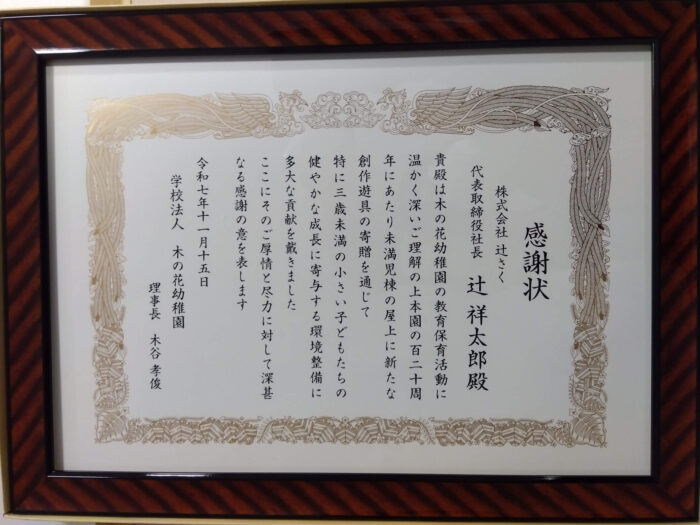 感謝状
株式会社 辻さく
代表取締役社長 辻 祥太郎殿
貴殿は木の花幼稚園の教育保育活動に
温かく深いご理解の上本園の百二十周
年にあたり未満児棟の屋上に新たな
創作遊具の寄贈を通じて
特に三歳未満の小さい子どもたちの
健やかな成長に寄与する環境整備に
多大な貢献を戴きました
ここにそのご厚情と尽力に対して深甚
なる感謝の意を表します
令和七年十一月十五日
学校法人 木の花幼稚園
理事長 木谷 孝俊